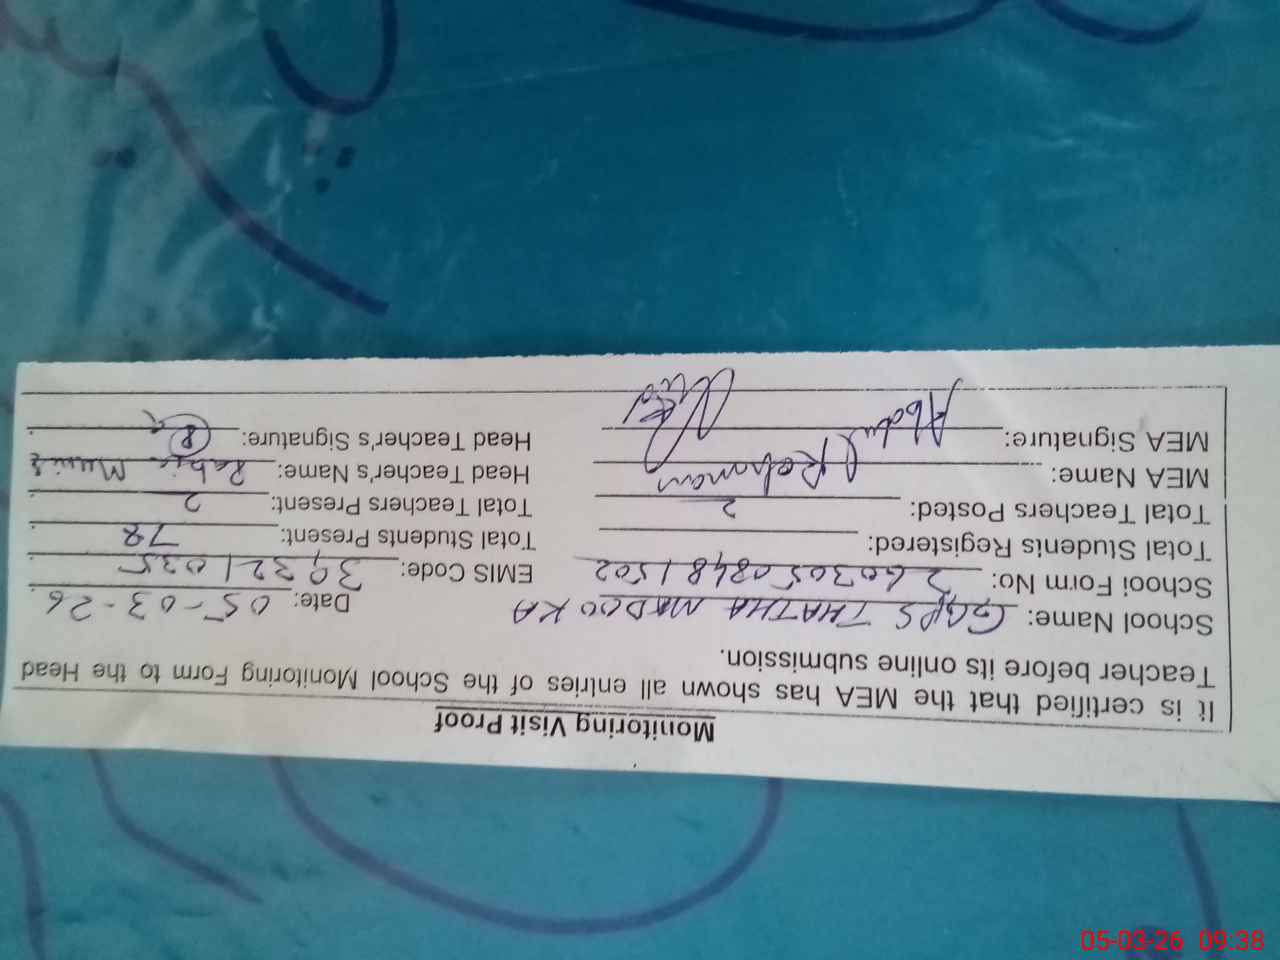 Monitoring Visit Proof
It is certified that the MEA has shown all entries of the School Monitoring Form to the Head
Teacher before its online submission.
School Name: GGPS THATHA Date: 05-03-26
School Form No: 26030508481502 EMIS Code: 39321035
Total Students Registered: Total Students Present: 78
Total Teachers Posted: 2 Total Teachers Present: 2
MEA Name: Abdul Rehman Head Teacher's Name: Rabia Munir
MEA Signature: Head Teacher's Signature:
05-03-26 09:38